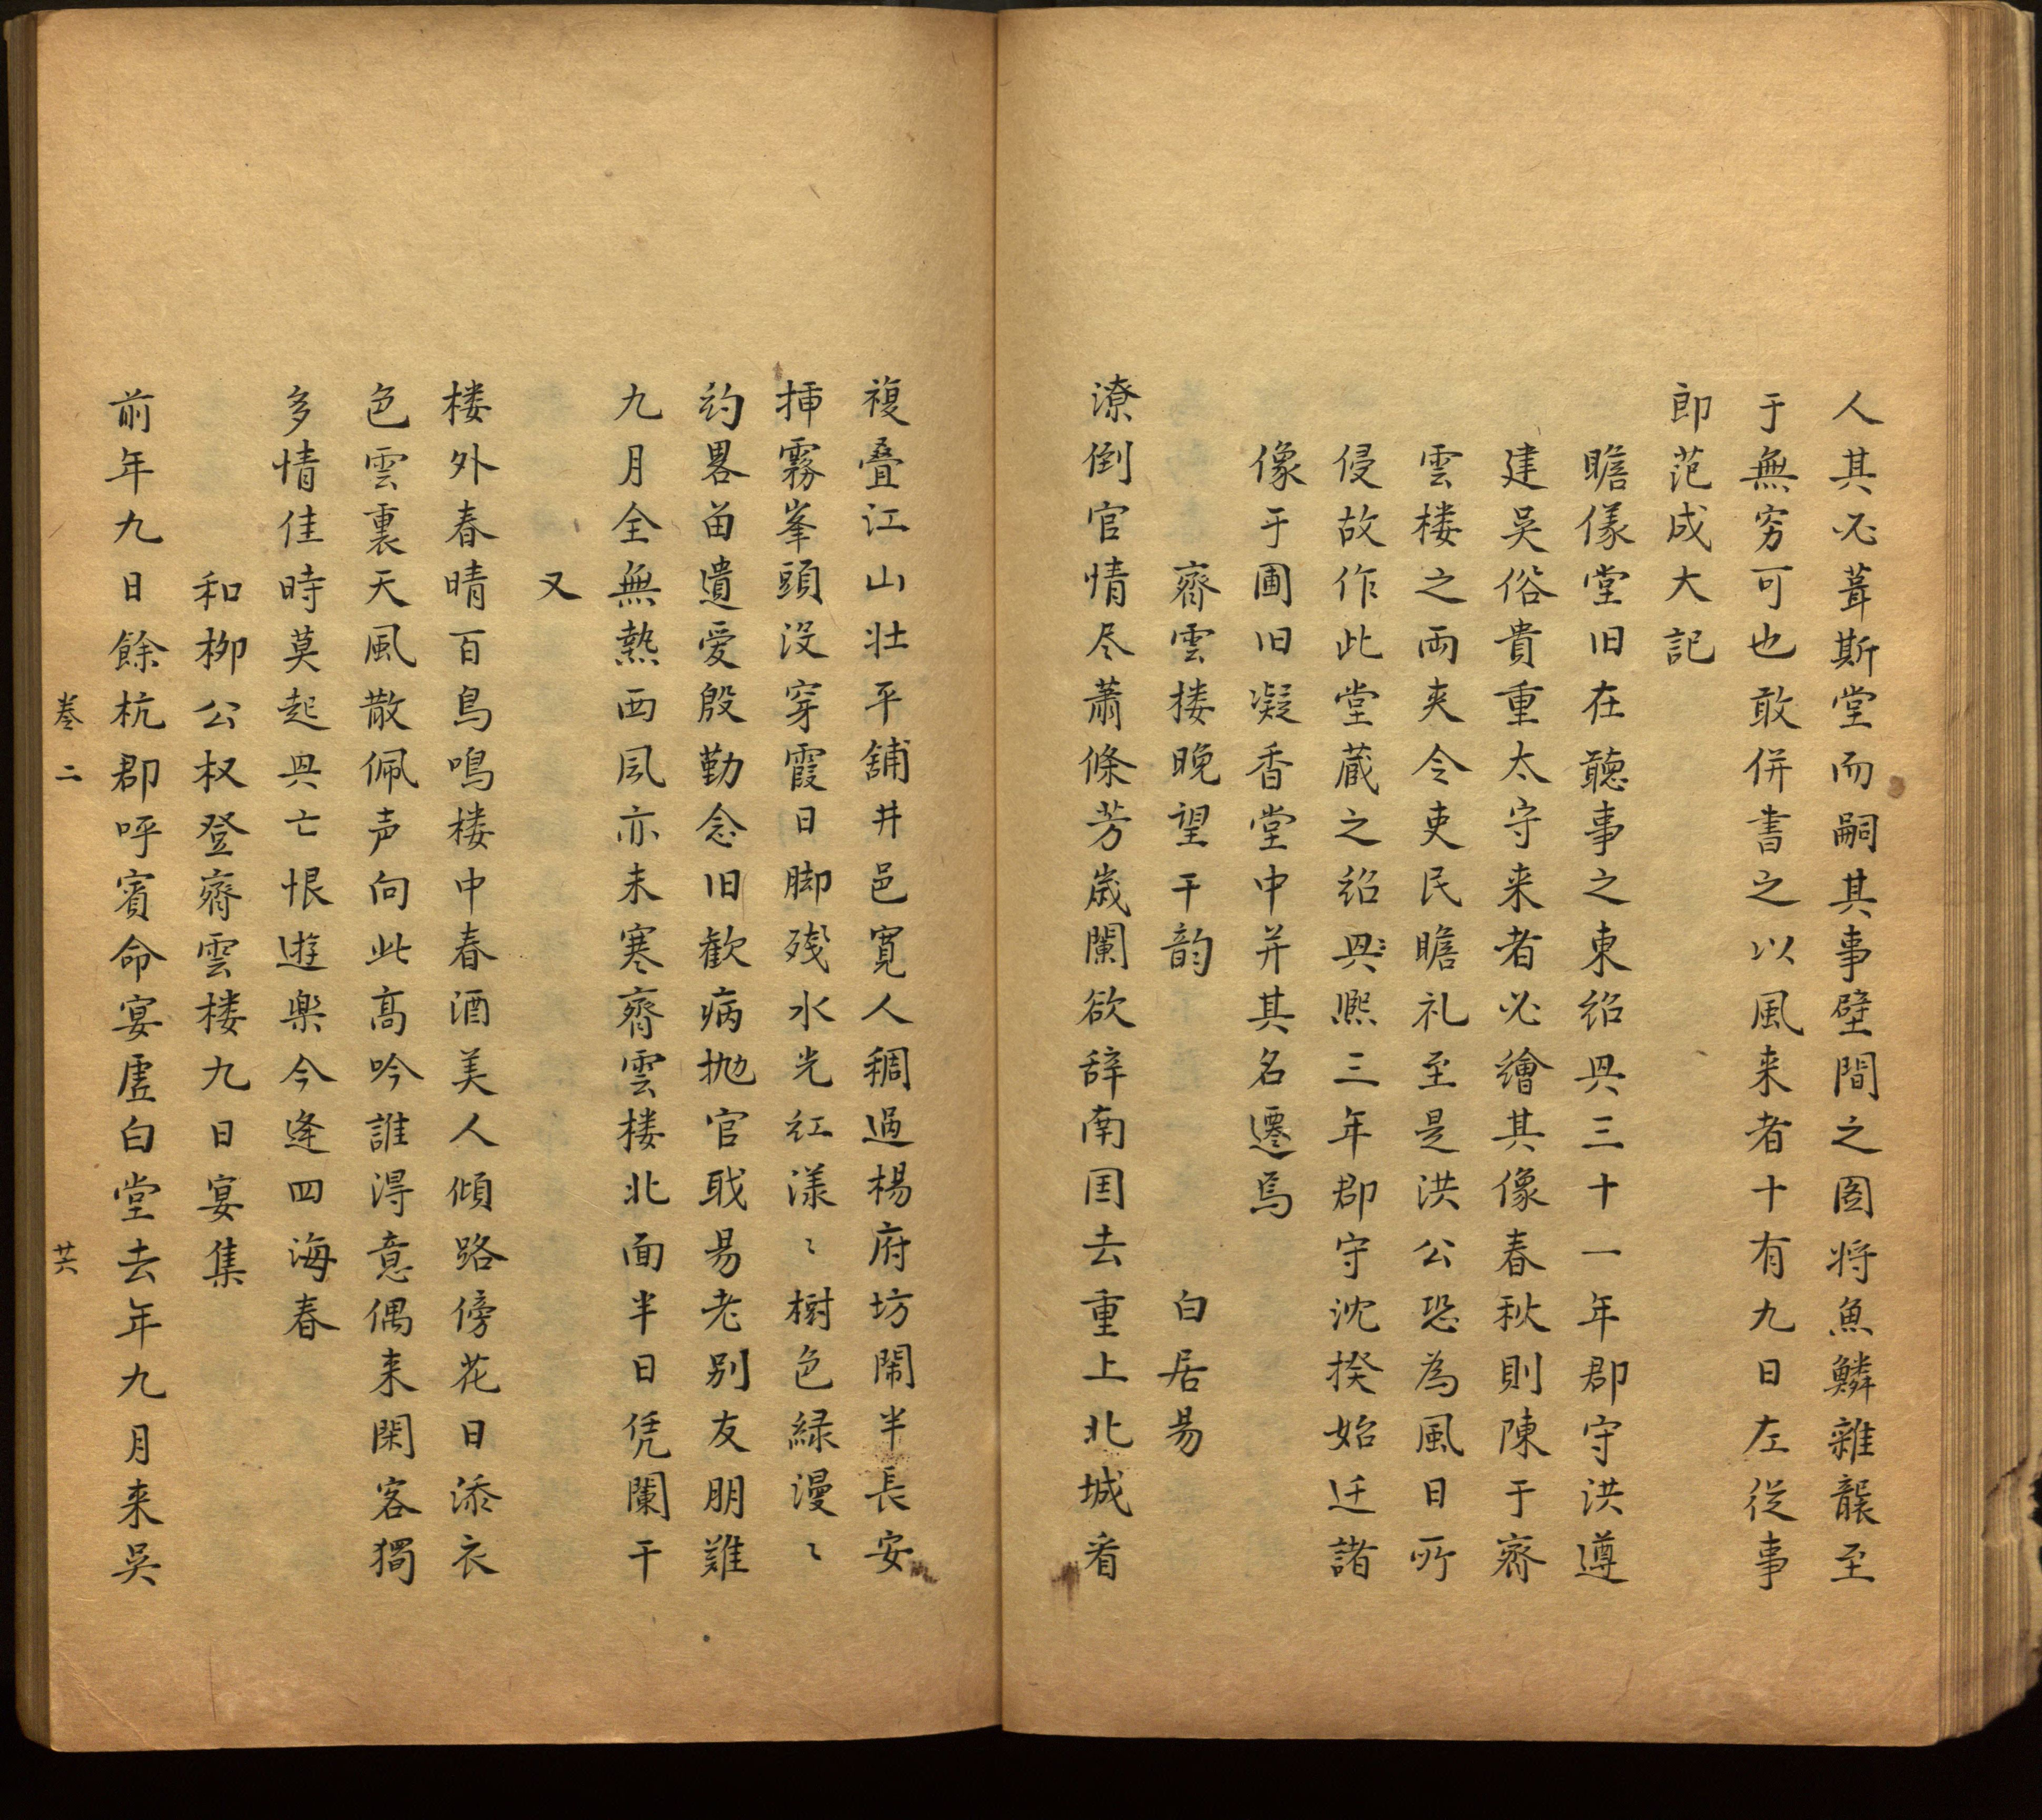 人其必葺斯堂而嗣其事壁間之圖将魚鱗雜襲至
于無穷可也敢併書之以風来者十有九日左従事
郎范成大記
瞻儀堂旧在聽事之東紹興三十一年郡守洪遵
建吴俗貴重太守来者必繪其像春秋則陳于齊
雲楼之両夹令吏民瞻礼至是洪公恐為風日所
侵故作此堂蔵之紹熙三年郡守沈揆始迁諸
像于圃旧凝香堂中并其名遷焉
齊雲楼晚望干韵　白居易
潦倒官情尽蕭條芳歳闌欲辞南国去重上北城看
複叠江山壮平舖井邑寛人稠過楊府坊閙半長安
挿霧峯頭没穿霞日脚残水光红漾〻樹色緑漫〻
約畧留遺爱殷勤念旧歓病抛官職易老别友朋難
九月全無熱西风亦未寒齊雲楼北面半日凭闌干
又
楼外春晴百鳥鳴楼中春酒美人傾路傍花日添衣
色雲裏天風散佩声向此高吟誰淂意偶来閑客獨
多情佳時莫起興亡恨遊楽今逢四海春
和柳公权登齊雲楼九日宴集
前年九日餘杭郡呼賓命宴虚白堂去年九月来吴
卷二　廿六